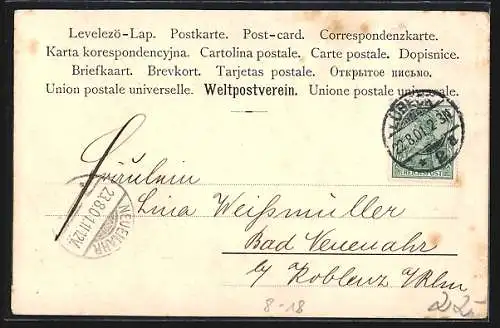 Levelezö-Lap. Postkarte. Post-card. Correspondenzkarte.
Karta korespondencyjna. Cartolina postale. Carte postale. Dopisnice.
Briefkaart. Brevkort. Tarjetas postale. Открытое письмо.
Union postale universelle. Weltpostverein. Unione postale universale.
LÜBECK
22.8.01. 2-3N
REICHSPOST
Fräulein
Lina Weißmüller
Bad Neuenahr
b/ Koblenz a/Rhn
NEUENAHR
23.8.01.11-12V.
8-18
22-